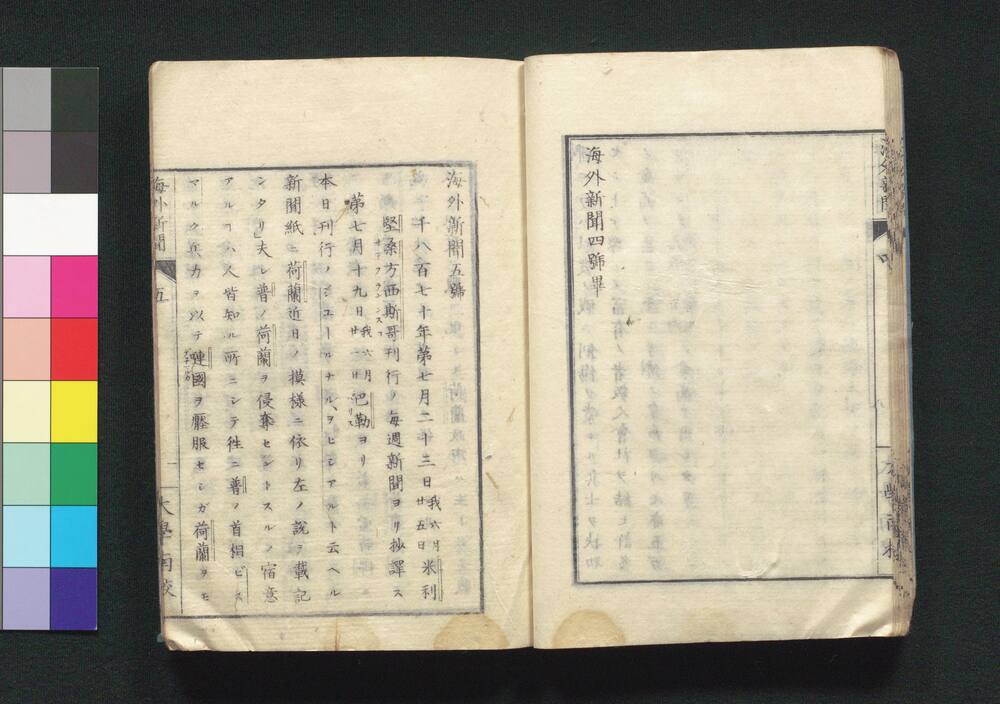 海外新聞四號畢
海外新聞
海外新聞五號
一千八百七十年第七月二十三日我六月廿五日米利
堅桑方西斯哥刊行ノ毎週新聞ヨリ抄譯ス
サンフランシスコ
第七月十九日我六月廿一日巴勒ヨリ
パリス
本日刊行ノジユールナル、ヲヒシアルト云ヘル
新聞紙ニ荷蘭近日ノ摸樣ニ依リ左ノ説ヲ載記
シタリ」夫レ普ノ荷蘭ヲ侵奪セントスルノ宿意
アルコハ人皆知ル所ニシテ徃ニ普ノ首相ビス
マルク兵力ヲ以テ嗹國ヲ壓服セシガ荷蘭ヲモ
海外新聞
五
一
大學南校